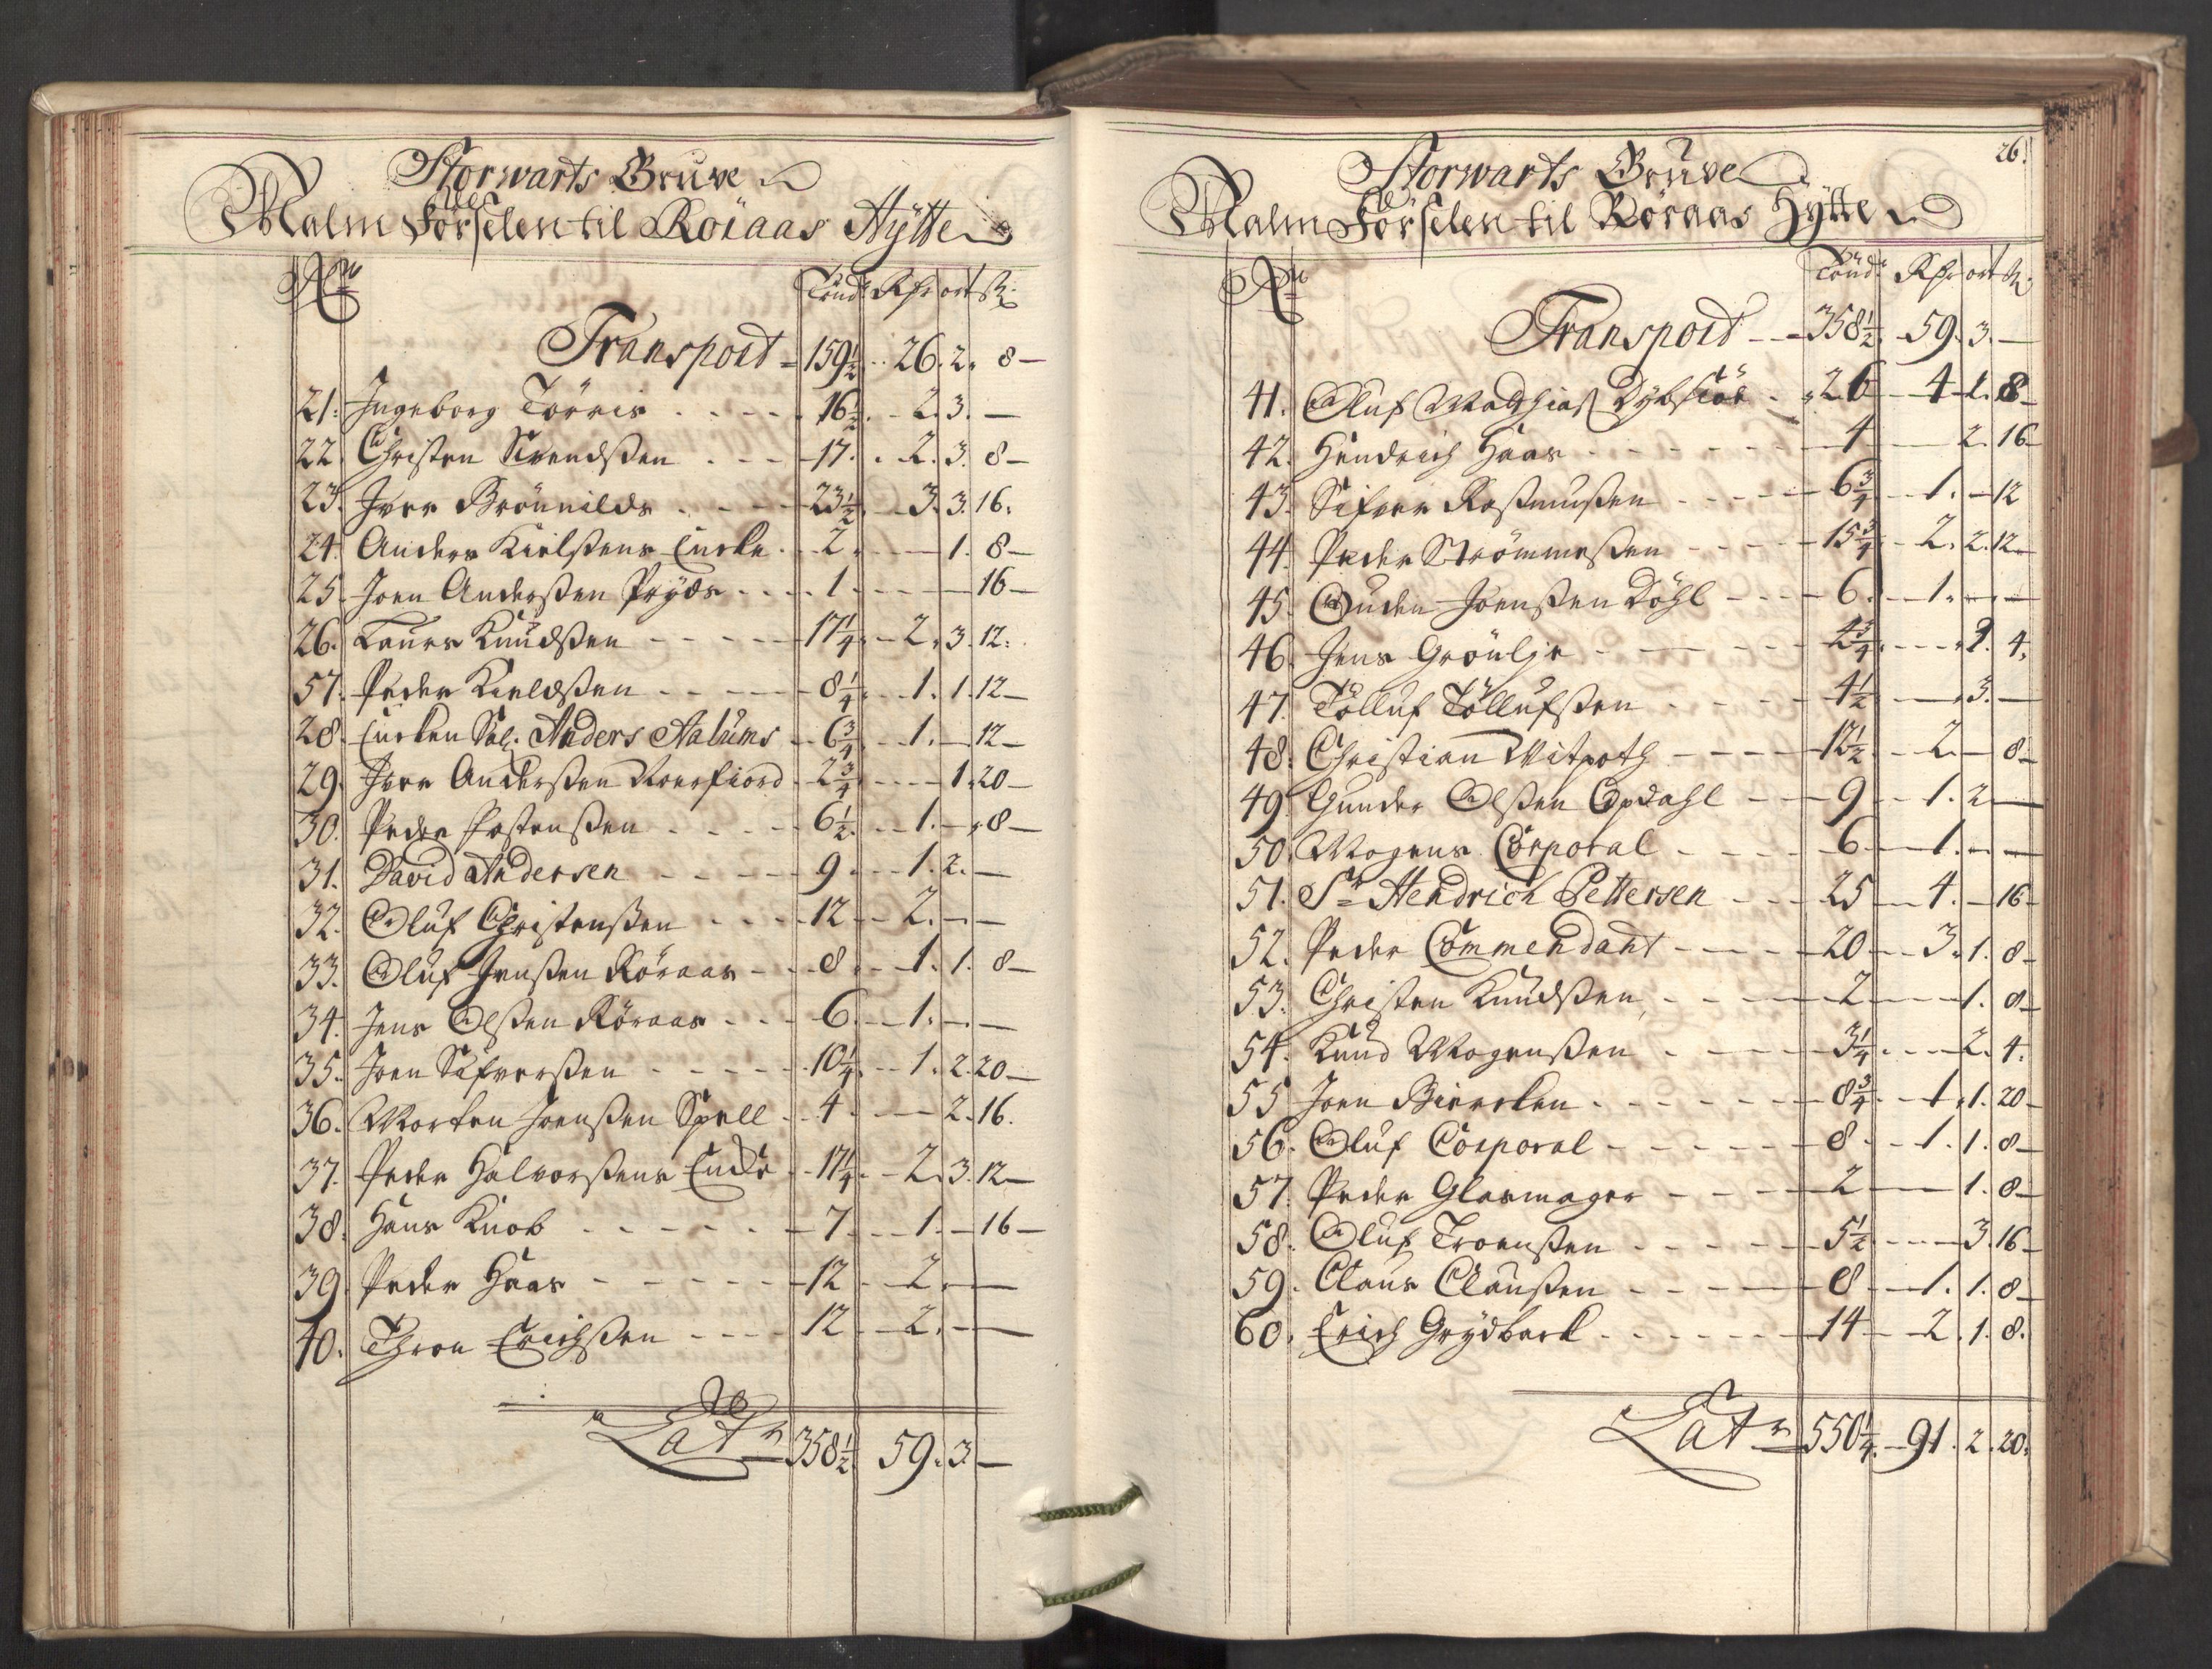 Storwarts Gruve
Malm Förselen til Röraas Hÿtte
No Tönd: Rdr ort ß
Transport - 159½ . . 26. 2. 8 —
21. Ingeborg Törris . . . . 16½ . - 2. 3. —
22. Christen Svendßen . . - 17. . 2. 3. 8 —
23. Iver Brönnilds . . - 23½ - 3. 3. 16.
24. Anders Kielßens Encke . 2 . - - 1. 8 —
25. Joen Anderßen Prÿds . . . 1 - - - 16 —
26. Laurs Knudßen - - - 17¼ - 2. 3. 12.
57. Peder Kieldßen - - - - 8¼ . 1. 1. 12 —
28. Encken Sal. Anders Aalums - 6¾ . 1. — 12 —
29. Iver Anderßen - 2¾ - - - 1. 20 —
30. Peder Postenßen . . . - 6½ . - 1. — 8 —
31. David Andersen - - - - 9 . - 1. 2. —
32. Oluf Christenßen . . . - 12 - 2. — —
33. Oluf Jenßen Röraas - . 8 . - 1. 1. 8 —
34. Jens Olßen Röraas . . . 6 . - 1. — —
35. Joen Sifverßen - - - - 10¼ . - 1. 2. 20 —
36. Morten Joenßen Spell . 4 . - 2. 16.
37. Peder Halvorßens Encke . 17¼ . - 2. 3. 12 —
38. Hans Knob . - - - - 7 . - 1. — 16 —
39. Peder Haas - - - - 12 - 2. —
40. Thron Erichßen - - - - 12 - 2. —
Lat. 358½ 59. 3. —
26.
Storwarts Gruve
Malm Förselen til Röraas Hÿtte
No Tönd: Rdr ort ß
Transport - - 358½ . 59. 3. —
41. Oluf Matthiaß - 26 - 4. 1. 8 —
42. Hendrich Haas - - - - 4 — 2. 16 —
43. Sifver Raßmußen - - - - 6¾ - 1. — 12
44. Peder Strömmeßen - - - - 15¾ - 2. 2. 12 —
45. Ouden Joenßen Döhl - - - 6. - 1. — —
46. Jens Grönlje - - - - 4¾ . - - 3. 4.
47. Tölluf Töllufßen - - - - 4½ — 3. —
48. Christian Witpoth - - - - 12½ - 2. — 8 —
49. Gunder Olßen Opdahl - - 9 - 1. 2 —
50. Mogens Corporal - - - - 6 - 1. — —
51. Sr. Hendrich Pettersen - - - 25 - 4. — 16 —
52. Peder Commendant - - - - 20 - 3. 1. 8 —
53. Christen Knudßen - - - - 2 - - 1. 8 —
54. Knud Mogenßen - - - - 3¼ . - - 2. 4.
55 Joen Biercken . - - - - 8¾ - 1. 1. 20 —
56. Oluf Corporal - - - - - 8 - 1. 1. 8 —
57. Peder Glasmager - - - - 2 — 1. 8 —
58. Oluf Troenßen . - - - - 5½ - - - 3. 16 —
59. Claus Claußen - - - - 8 - 1. 1. 8 —
60. Erich Grÿdback . - - - - 14 - 2. 1. 8.
Lat. 550¼ - 91. 2. 20.